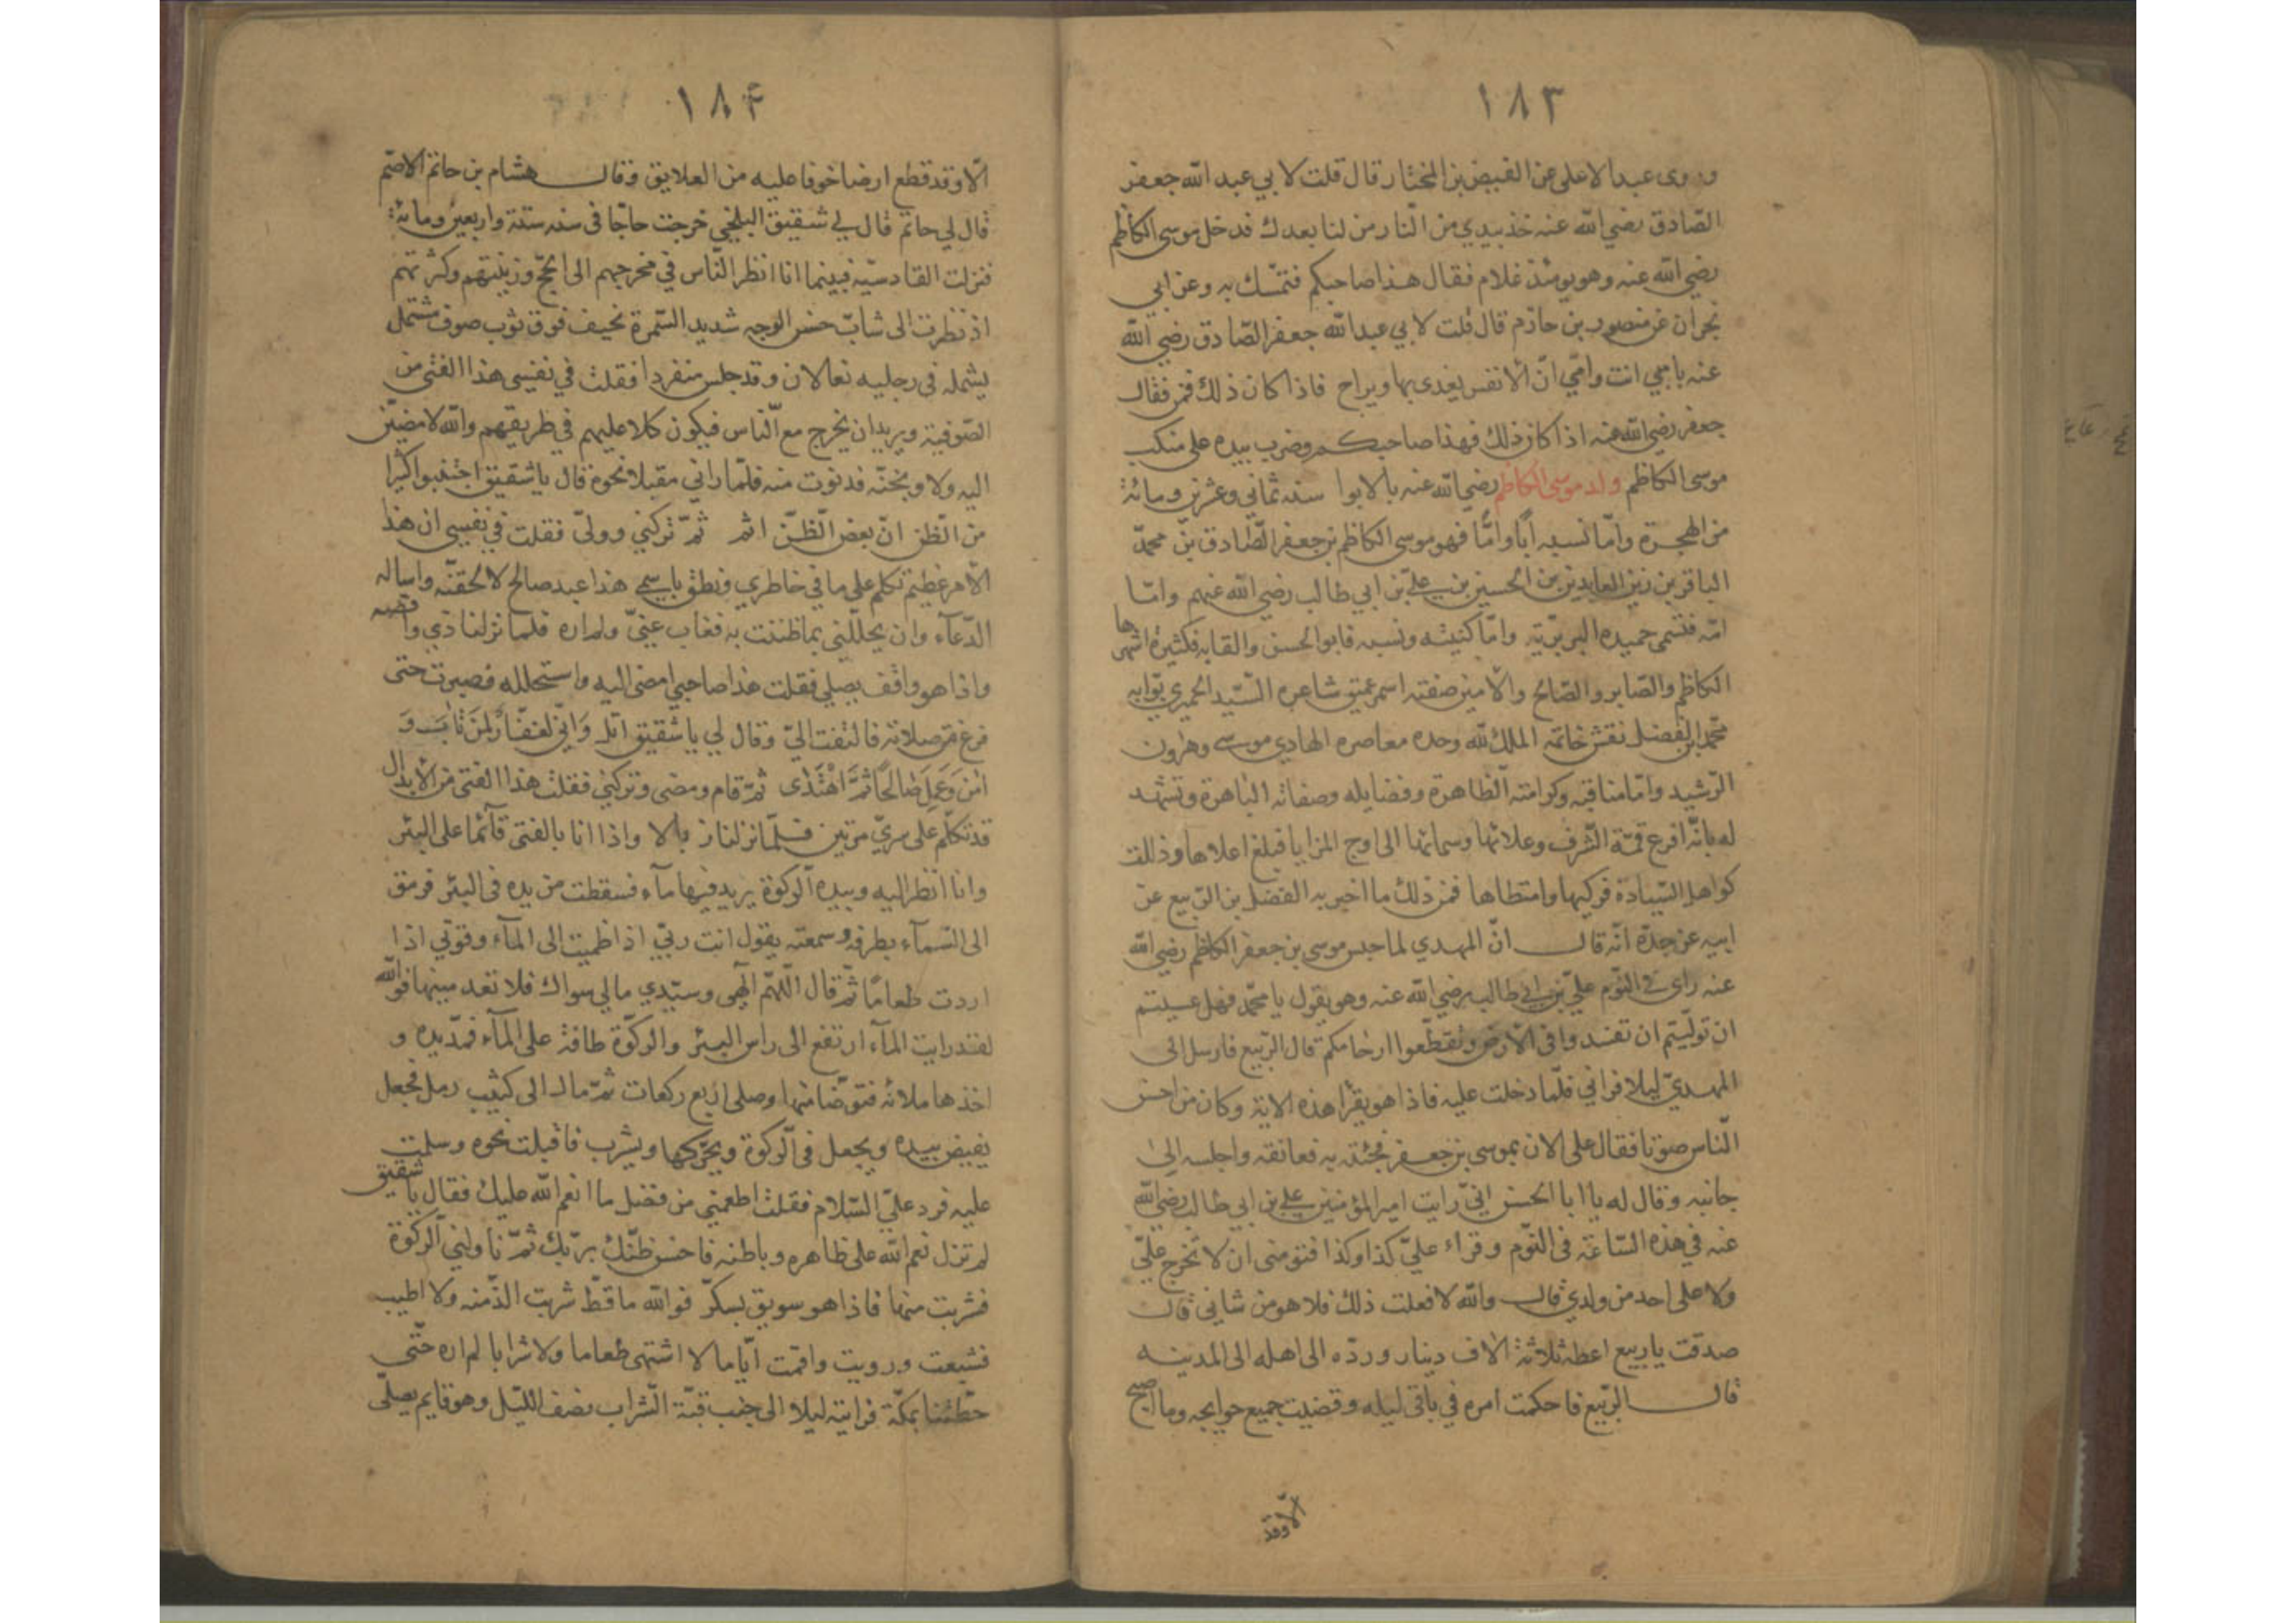 ١٨٣
وروى عبد الاعلى عن الفيض بن المختار قال قلت لابي عبد الله جعفر
الصّادق رضي الله عنه خذ بيدي من النّار من لنا بعدك فدخل موسى الكاظم
رضي الله عنه وهو يومئذ غلام فقال هذا صاحبكم فتمسّك به وعن ابي
نجران عن منصور بن حازم قال قلت لابي عبد الله جعفر الصّادق رضي الله
عنه بابي انت وامّي انّ الانفس يغدى بها ويراح فاذا كان ذلك فمن فقال
جعفر رضي الله عنه اذا كان ذلك فهذا صاحبكم وضرب بيده على منكب
موسى الكاظم ولد موسى الكاظم رضي الله عنه بالابوا سنه ثماني وعشرين ومائة
من الهجرة وامّا نسبه ابًا وامًّا فهو موسى الكاظم بن جعفر الصّادق بن محمّد
الباقر بن زين العابدين بن الحسين بن علي بن ابي طالب رضي الله عنهم وامّا
امّه فتسمى حميده البربريّة وامّا كنيته ونسبه فابو الحسن والقابه فكثيرة اشهرها
الكاظم والصّابر والصّالح والامين صفته اسمر عميق شاعره السّيد الحميري بوّابه
محمّد ابن الفضل نقش خاتمه الملك لله وحده معاصره الهادي موسى وهرون
الرّشيد وامّا مناقبه وكرامته الظّاهرة وفضايله وصفاته الباهرة وتشهد
له بانّه افرع قمّة الشّرف وعلاتها وسماتها الى اوج المزايا فبلغ اعلاها وذللت
كواهل السّيادة فركبها وامتطاها فمن ذلك ما اخبر به الفضل بن الرّبيع عن
ابيه عن جدّه انّه قال انّ المهدي لما حبس موسى بن جعفر الكاظم رضي الله
عنه راى في النّوم علي بن ابي طالب رضي الله عنه وهو يقول يا محمّد فهل عسيتم
ان تولّيتم ان تفسدوا في الارض وتقطّعوا ارحامكم قال الرّبيع فارسل الى
المهديّ ليلا فراني فلمّا دخلت عليه فاذا هو يقرا هذه الاية وكان من احسن
النّاس صوتا فقال على الان بموسى بن جعفر فجئته به فعانقه واجلسه الى
جانبه وقال له يا ابا الحسن انيّ رايت امير المؤمنين علي بن ابي طالب رضي الله
عنه في هذه السّاعة في النّوم وقراء عليّ كذا وكذا فتومنى ان لا تخرج عليّ
ولا على احد من ولدي قال والله لا فعلت ذلك فلا هو من شاني قال
صدقت يا ربيع اعطه ثلاثة الاف دينار وردّه الى اهله الى المدينه
قال الرّبيع فاحكمت امره في باقي ليله وقضيت جميع حوايجه وما اصبح
الّا وقد
١٨۴
الّا وقد قطع ارضا خوفا عليه من العلايق وقال هشام بن حاتم الاصمّ
قال لي حاتم قال لي شقيق البلخي خرجت حاجّا في سنه ستة واربعين ومائة
فنزلت القادسيّه فبينما انا انظر النّاس في مخرجهم الى الحجّ وزينتهم وكثرتهم
اذ نظرت الى شابّ حسن الوجه شديد السّمرة نحيف فوق ثوب صوف مشتمل
بشمله في رجليه نعالان وقد جلس منفردا فقلت في نفسي هذا الفتى من
الصّوفيّة ويريد ان يخرج مع النّاس فيكون كلا عليهم في طريقهم والله لامضيّن
اليه ولاوبخنّه فدنوت منه فلمّا راني مقبلا نحوه قال يا شقيق اجتنبوا كثيرا
من الظّن انّ بعض الظّنّ اثم ثمّ تركني وولىّ فقلت في نفسي ان هذا
الامر عظيم تكلم على ما في خاطري ونطق باسمي هذا عبد صالح لالحقنّه واساله
الدّعآء وان يحللّني بما ظننت به فغاب عنيّ ولم اره فلما نزلنا ذي واقصه
واذا هو واقف يصلي فقلت هذا صاحبي امضى اليه واستحلله فصبرت حتى
فرغ من صلاته فالتفت اليّ وقال لي يا شقيق اتل وَانّي لغفّارٌ لمَنْ تابَ وَ
امَنَ وَعَمِلَ صَالحًا ثمَّ اهْتَدى ثمّ قام ومضى وتركني فقلت هذا الفتى من الابدال
قد تكلّم على سريّ مرتين فلمّا نزلنا زبالا واذا انا بالفتى قآئما على البئر
وانا انظر اليه وبيده الركوة يريد فيها مآء فسقطت من يده في البئر فرمق
الى السّمآء بطرفه وسمعته يقول انت ربيّ اذا ظميت الى المآء وقوتي اذا
اردت طعامًا ثمّ قال اللّهمّ الهي وسيّدي مالي سواك فلا تعدمنيها فوالله
لقد رايت المآء ارتفع الى راس البئر والركوّة طافة على المآء فمدّ يده و
اخذها ملانه فتوضّا منها وصلى اربع ركعات ثمّ مال الى كثيب رمل فجعل
يفيض بيده ويجعل في الركوة ويحرّكها ويشرب فاقبلت نحوه وسلمت
عليه فرد عليّ السّلام فقلت اطعمني من فضل ما انعم الله عليك فقال يا شقيق
لم تزل نعم الله على ظاهره وباطنه فاحسن ظنّك بربّك ثمّ ناولني الركوة
فشربت منها فاذا هو سويق بسكرّ فوالله ما قطّ شربت الذّ منه ولا اطيب
فشبعت ورويت واقمت ايّاما لا اشتهى طعاما ولا شرابا لم اره حتّى
حطّنا بمكّة فرايته ليلا الى جنب قبّة الشّراب نصف اللّيل وهو قايم يصلّى